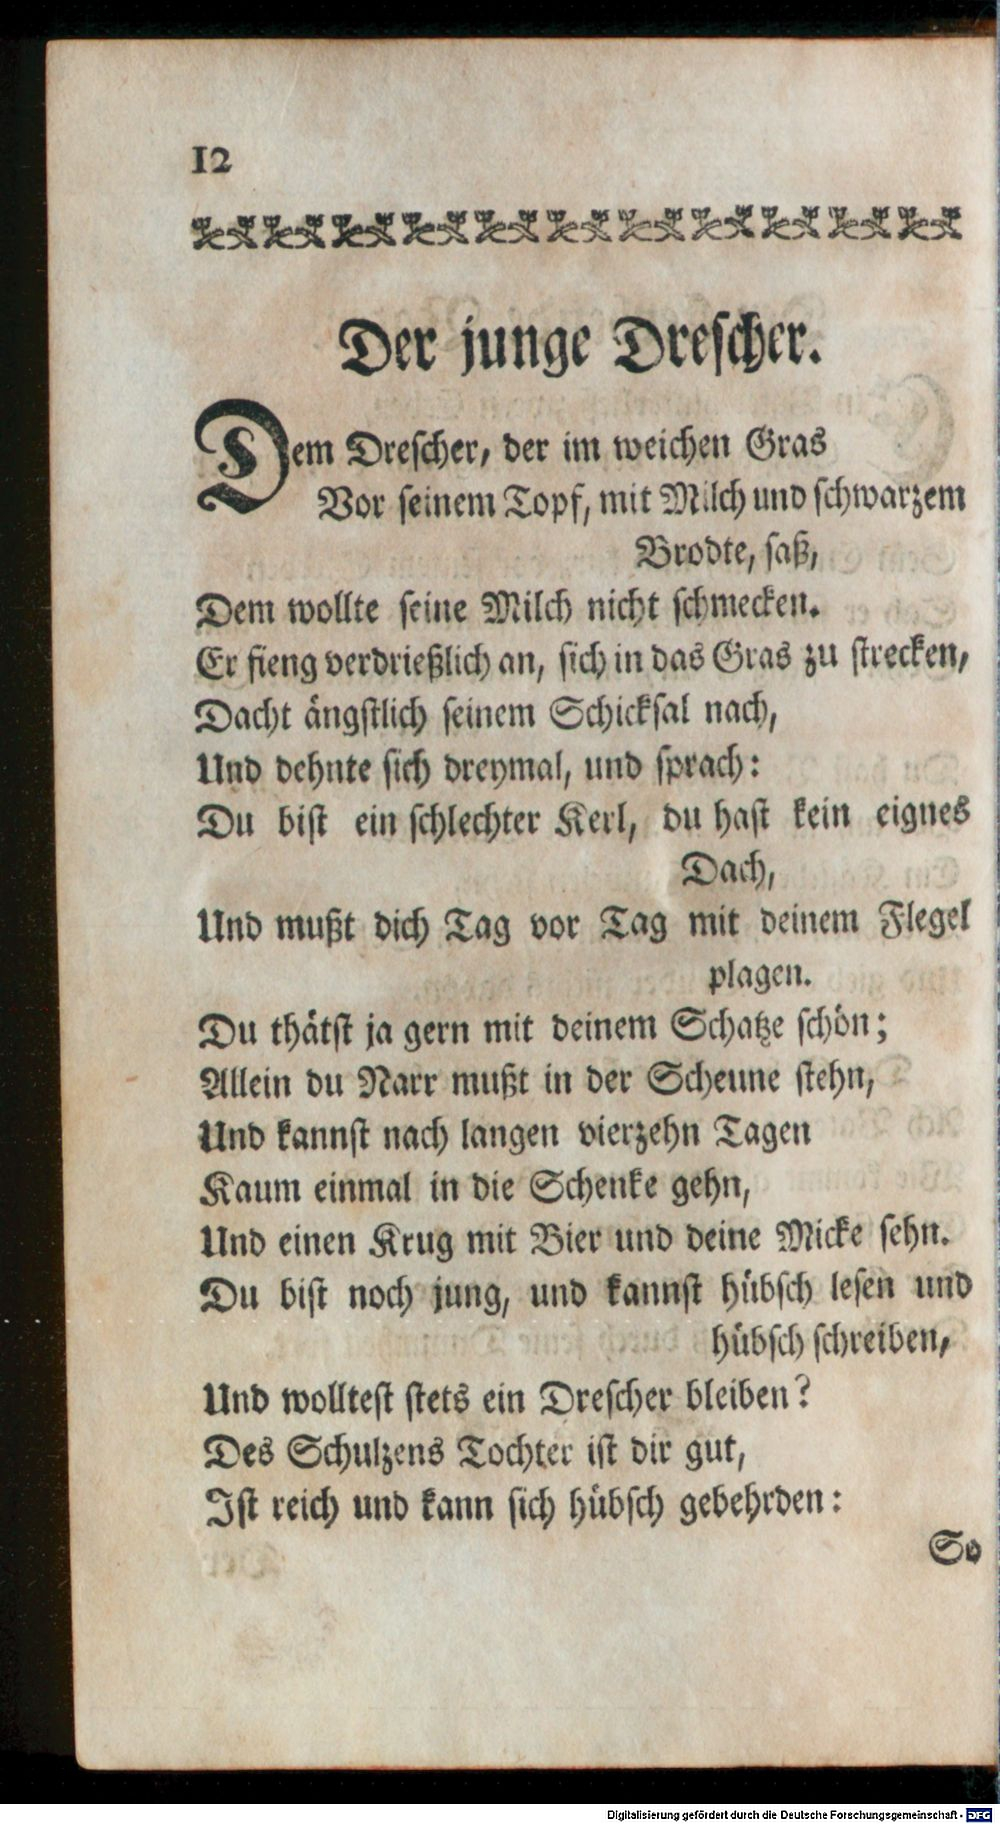 12
Der junge Drescher.
Dem Drescher, der im weichen Gras
Vor seinem Topf, mit Milch und schwarzem
Brodte, saß,
Dem wollte seine Milch nicht schmecken.
Er fieng verdrießlich an, sich in das Gras zu strecken,
Dacht ängstlich seinem Schicksal nach,
Und dehnte sich dreymal, und sprach:
Du bist ein schlechter Kerl, du hast kein eignes
Dach,
Und mußt dich Tag vor Tag mit deinem Flegel
plagen.
Du thätst ja gern mit deinem Schatze schön;
Allein du Narr mußt in der Scheune stehn,
Und kannst nach langen vierzehn Tagen
Kaum einmal in die Schenke gehn,
Und einen Krug mit Bier und deine Micke sehn.
Du bist noch jung, und kannst hübsch lesen und
hübsch schreiben,
Und wolltest stets ein Drescher bleiben?
Des Schulzens Tochter ist dir gut,
Ist reich und kann sich hübsch gebehrden:
So
Digitalisierung gefördert durch die Deutsche Forschungsgemeinschaft - DFG